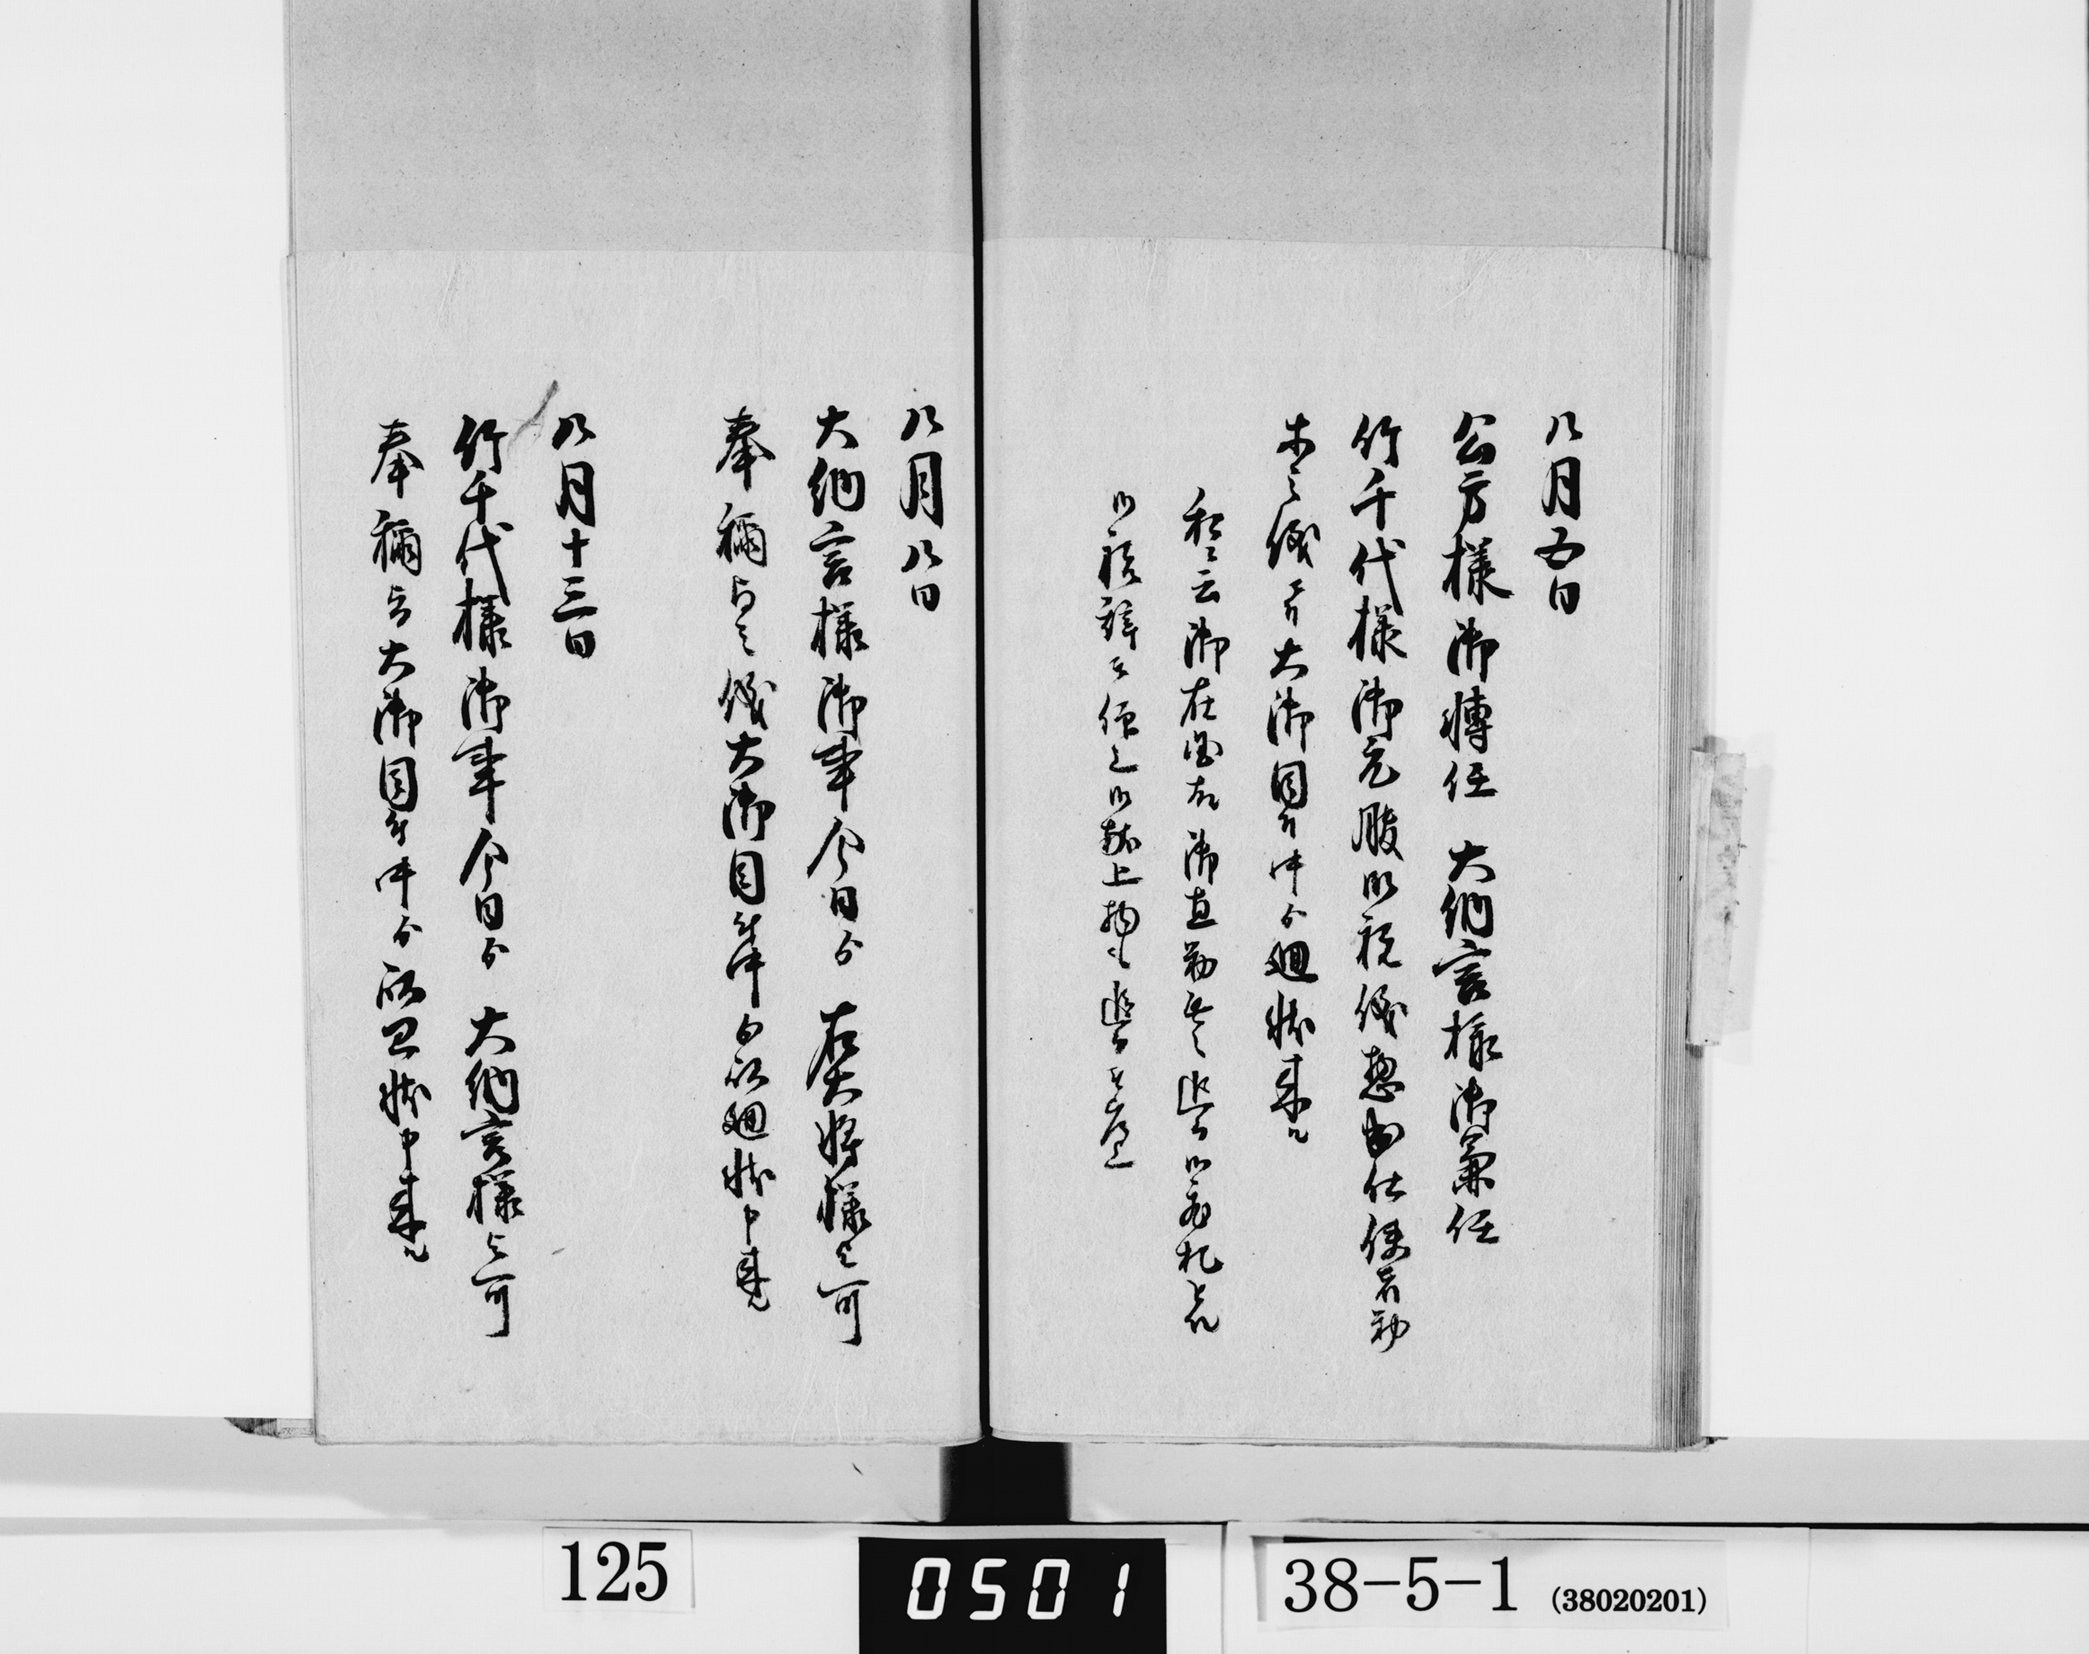 八月五日
公方様御轉任 大納言様御兼任
竹千代様御元服御祝儀惣出仕使者勤
等之儀ニ付大御目付中ゟ廻状来ル
御在国故御直勤無之
御祝詞 御献上物も
八月八日
大納言様御事今日ゟ 右大将様と可
奉称与之儀大御目付中ゟ以廻状申来ル
八月十三日
竹千代様御事今日ゟ 大納言様与可
奉称旨大御目付中ゟ以廻状申来ル
125
0501
38-5-1 (38020201)